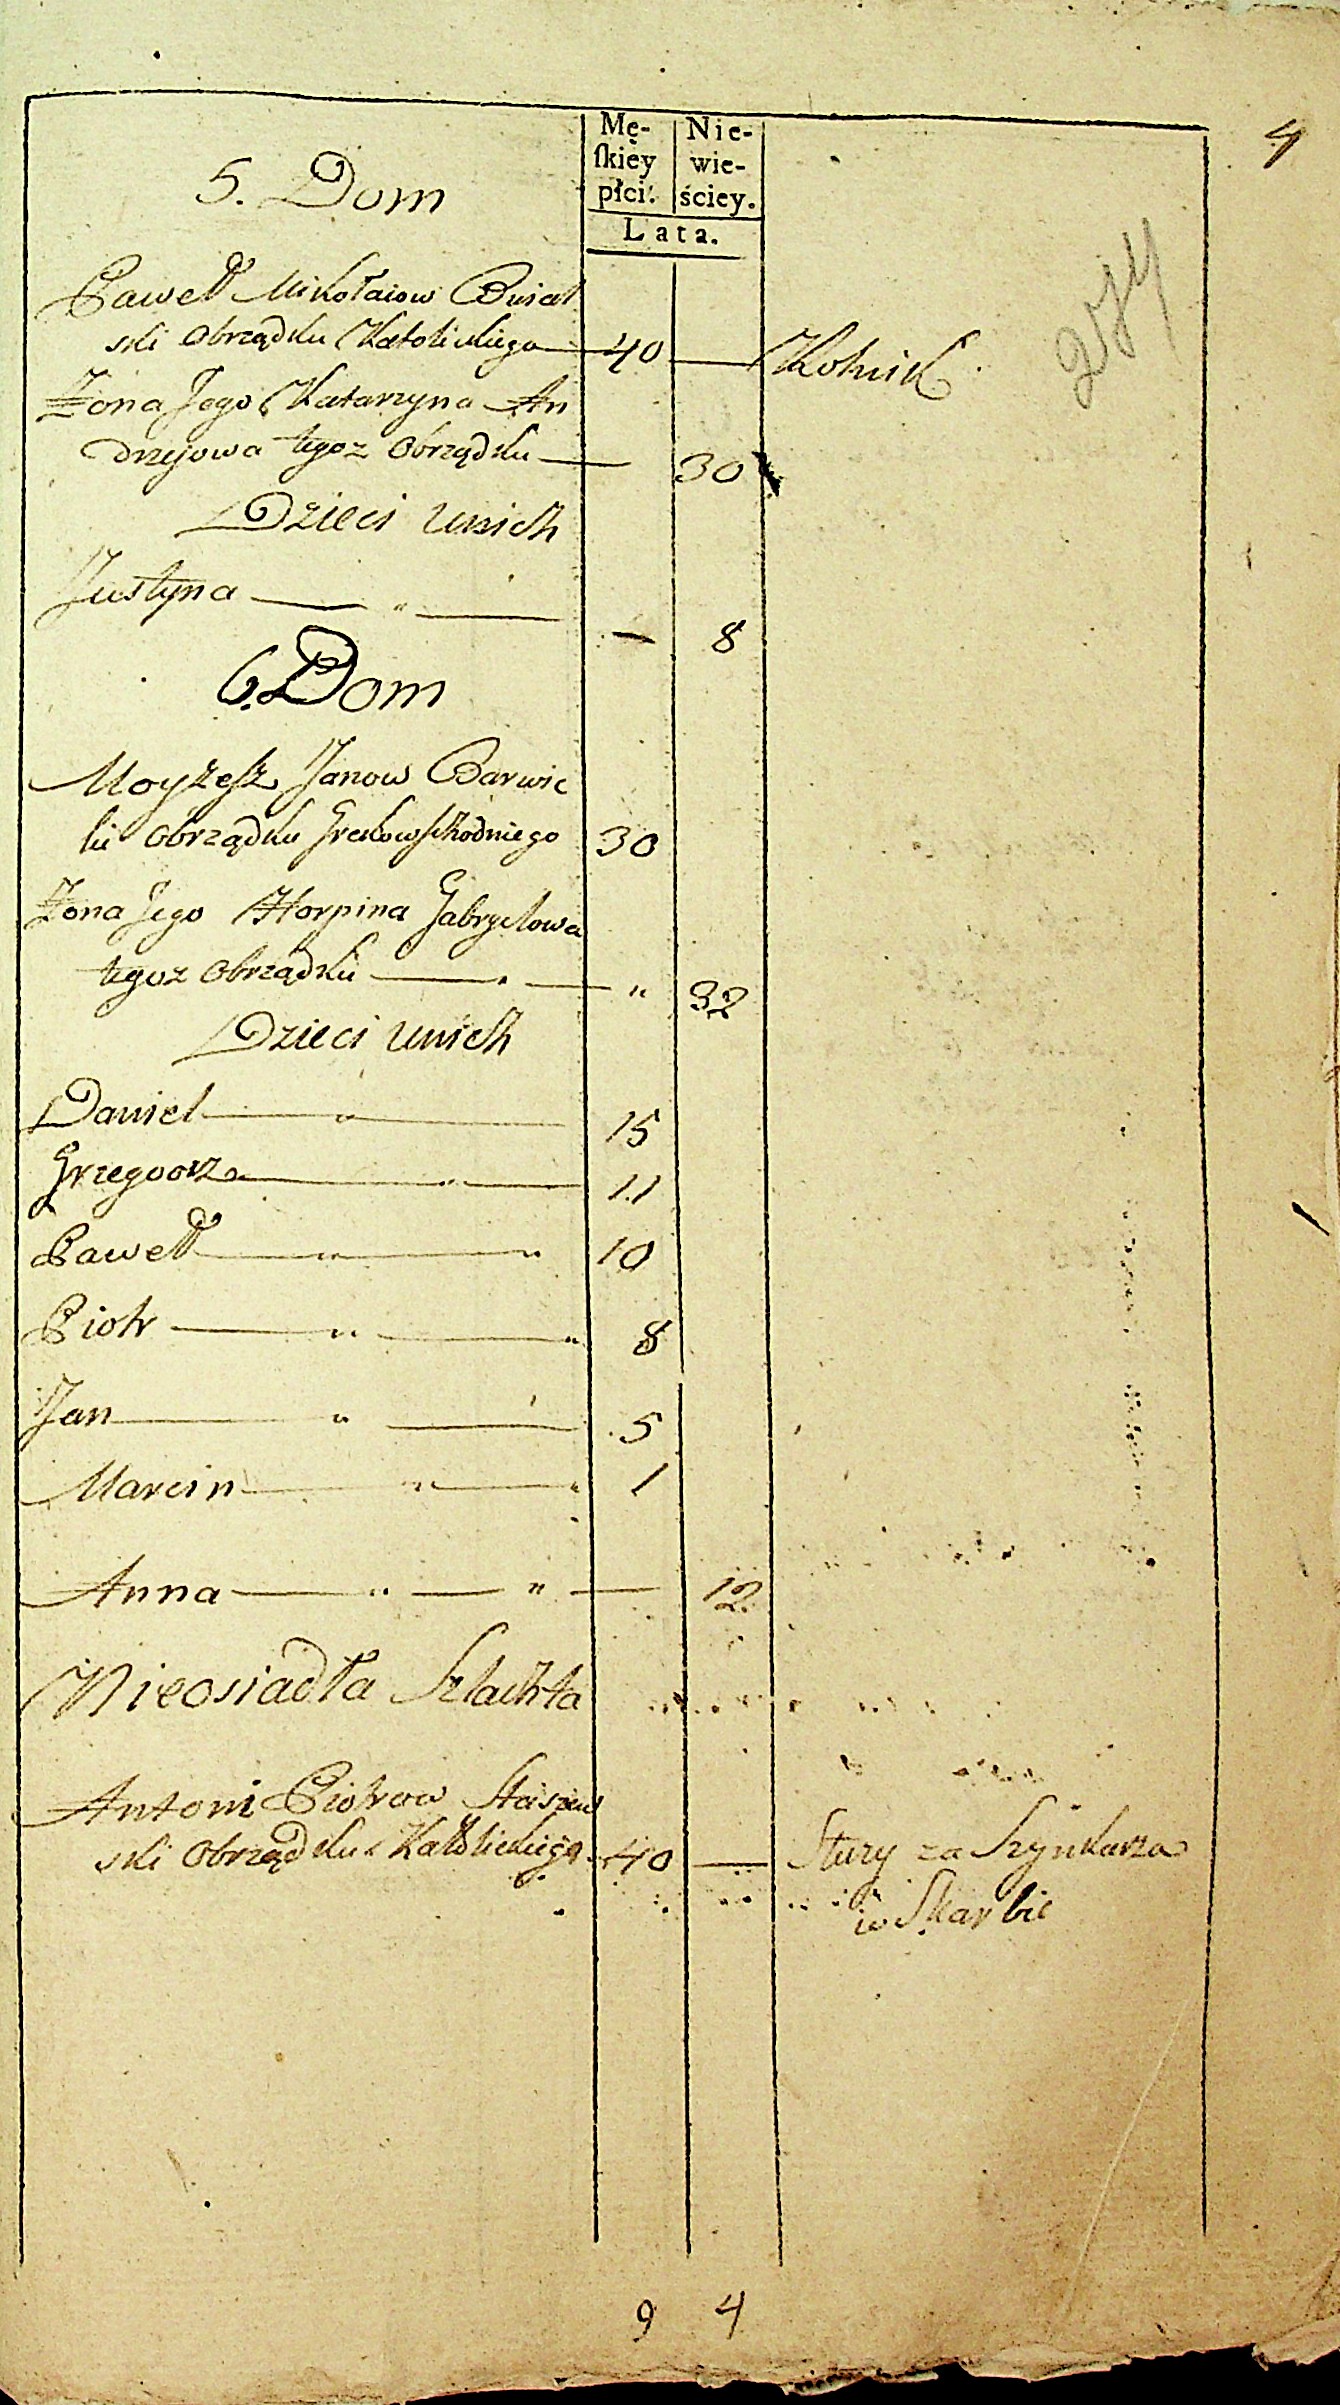 4
Mę-
ſkiey
płci.
Nie-
wie-
ściey.
Lata.
5. Dom
Paweł Mikołaiow Buiał
ski Obrządku Katolickiego — 40 — Rolnik
Żona Jego Katarzyna An
drzejowa tegoz Obrządku — 30
Dzieci Unich
Justyna — " — — 8
6. Dom
Moyżesz Janow Barwic
ki Obrządku Greko wschodniego 30
Żona Jego Horpina Gabryelowa
tegoz Obrządku — " — " 32
Dzieci Unich
Daniel — " — 15
Grzegoorz — " — 11
Paweł — " — " 10
Piotr — " — " 8
Jan — " — 5
Marcin — " — " 1
Anna — " — " — 12
Nieosiadła Szlachta
Antoni Piotrow Staszew
ski Obrządku Katolickiego 40 — Służy za Szynkarza
w Skarbie
9 4